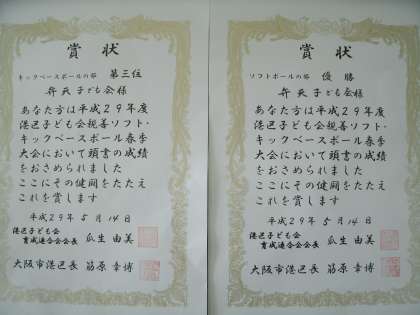 賞状
キックベースボールの部 第三位
弁天子ども会様
あなた方は平成29年度
港区子ども会親善ソフト・
キックベースボール春季
大会において頭書の成績
をおさめられました
ここにその健闘をたたえ
これを賞します
平成29年5月14日
港区子ども会
育成連合会会長 瓜生 由美
大阪市港区長 筋原 章博
賞状
ソフトボールの部 優勝
弁天子ども会様
あなた方は平成29年度
港区子ども会親善ソフト・
キックベースボール春季
大会において頭書の成績
をおさめられました
ここにその健闘をたたえ
これを賞します
平成29年5月14日
港区子ども会
育成連合会会長 瓜生 由美
大阪市港区長 筋原 章博